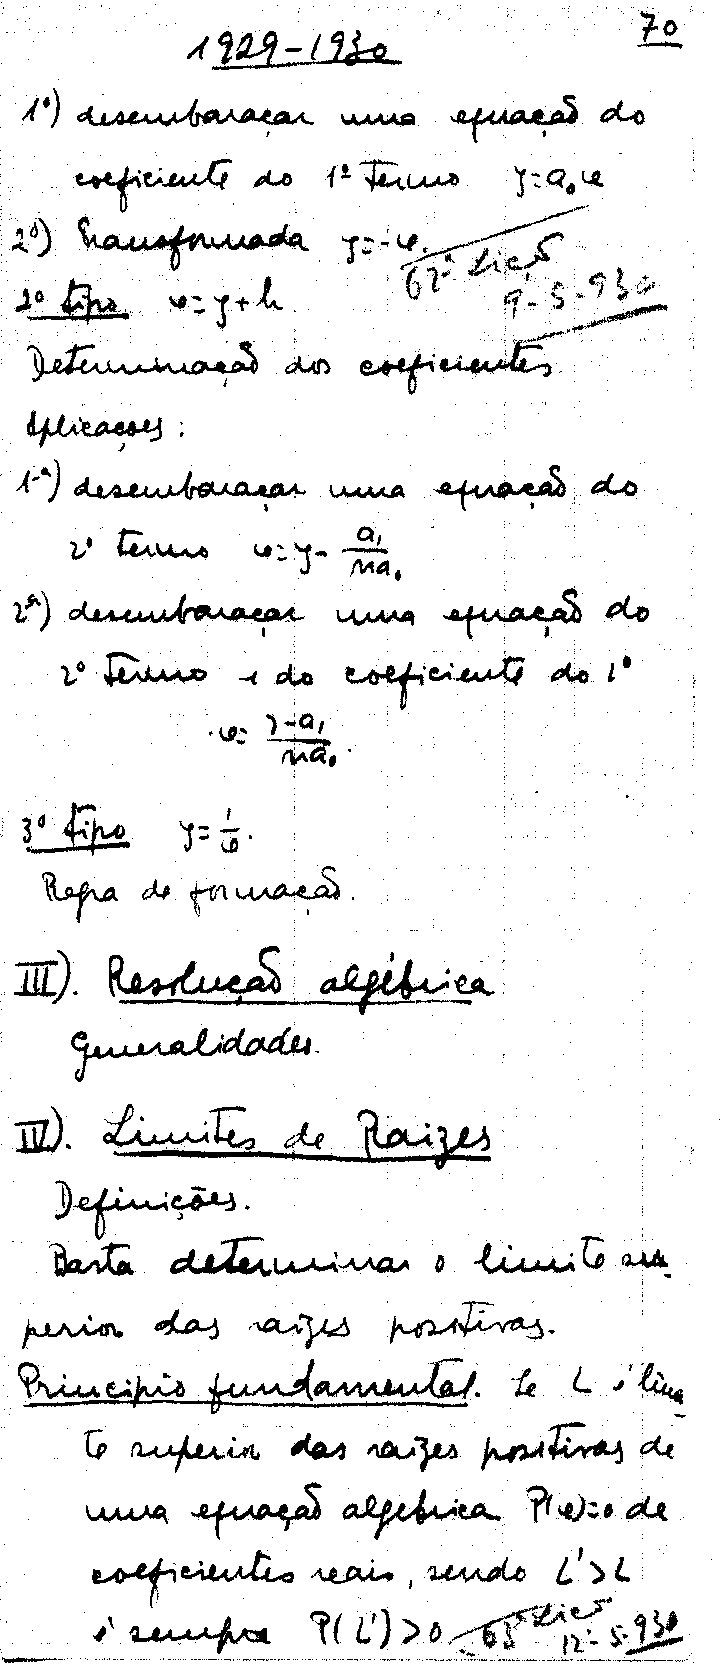 70
1929-1930
1º) desembaraçar uma equação do
coeficiente do 1º termo y=a₀x
2º) Transformada y=-x.
62ª Lição
9-5-930
2º tipo x=y+h
Determinação dos coeficientes
Aplicações:
1ª) desembaraçar uma equação do
2º termo x=y-a₁/na₀
2ª) desembaraçar uma equação do
2º termo e do coeficiente do 1º
x=y-a₁/na₀.
3º tipo y=1/x.
Regra de formação.
III). Resolução algébrica
Generalidades.
IV). Limites de Raizes
Definições.
Basta determinar o limite su-
perior das raizes positivas.
Principio fundamental. Se L é limi-
te superior das raizes positivas de
uma equação algebrica P(x)=0 de
coeficientes reais, sendo L'>L
é sempre P(L')>0
63ª Lição
12-5-930